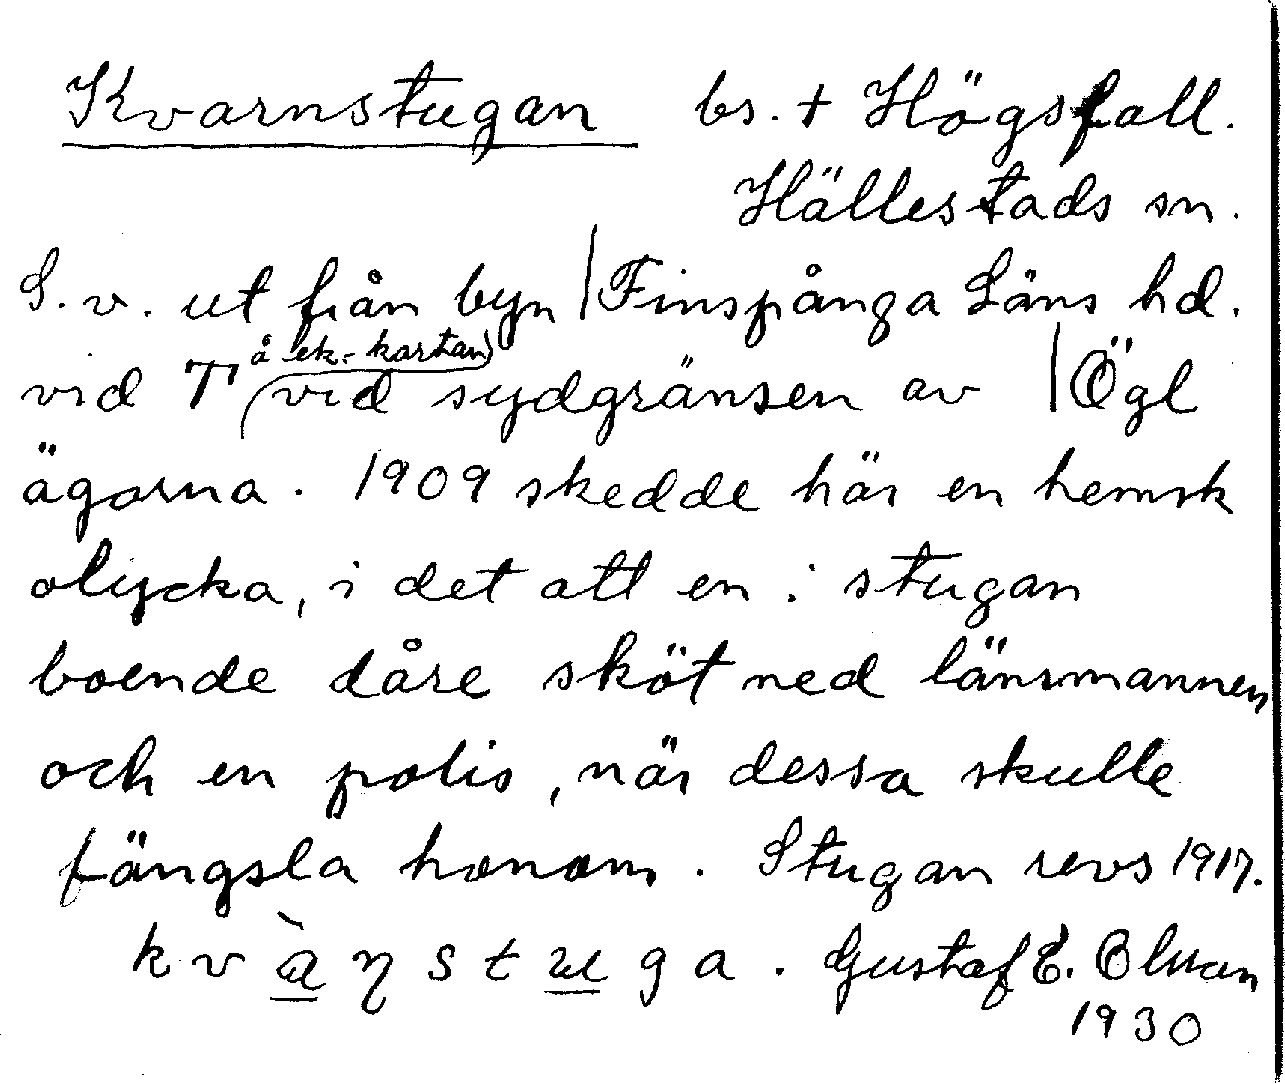 Kvarnstugan bs. + Högsfall.
Hällestads sn.
S. v. ut från byn | Finspånga Läns hd.
å ek.-kartan)
vid "T" (vid sydgränsen av | Ögl
ägorna. 1909 skedde här en hemsk
olycka, i det att en i stugan
boende dåre sköt ned länsmannen
och en polis, när dessa skulle
fängsla honom. Stugan revs 1917.
kvàηstuga. Gustaf E. Olsson
1930